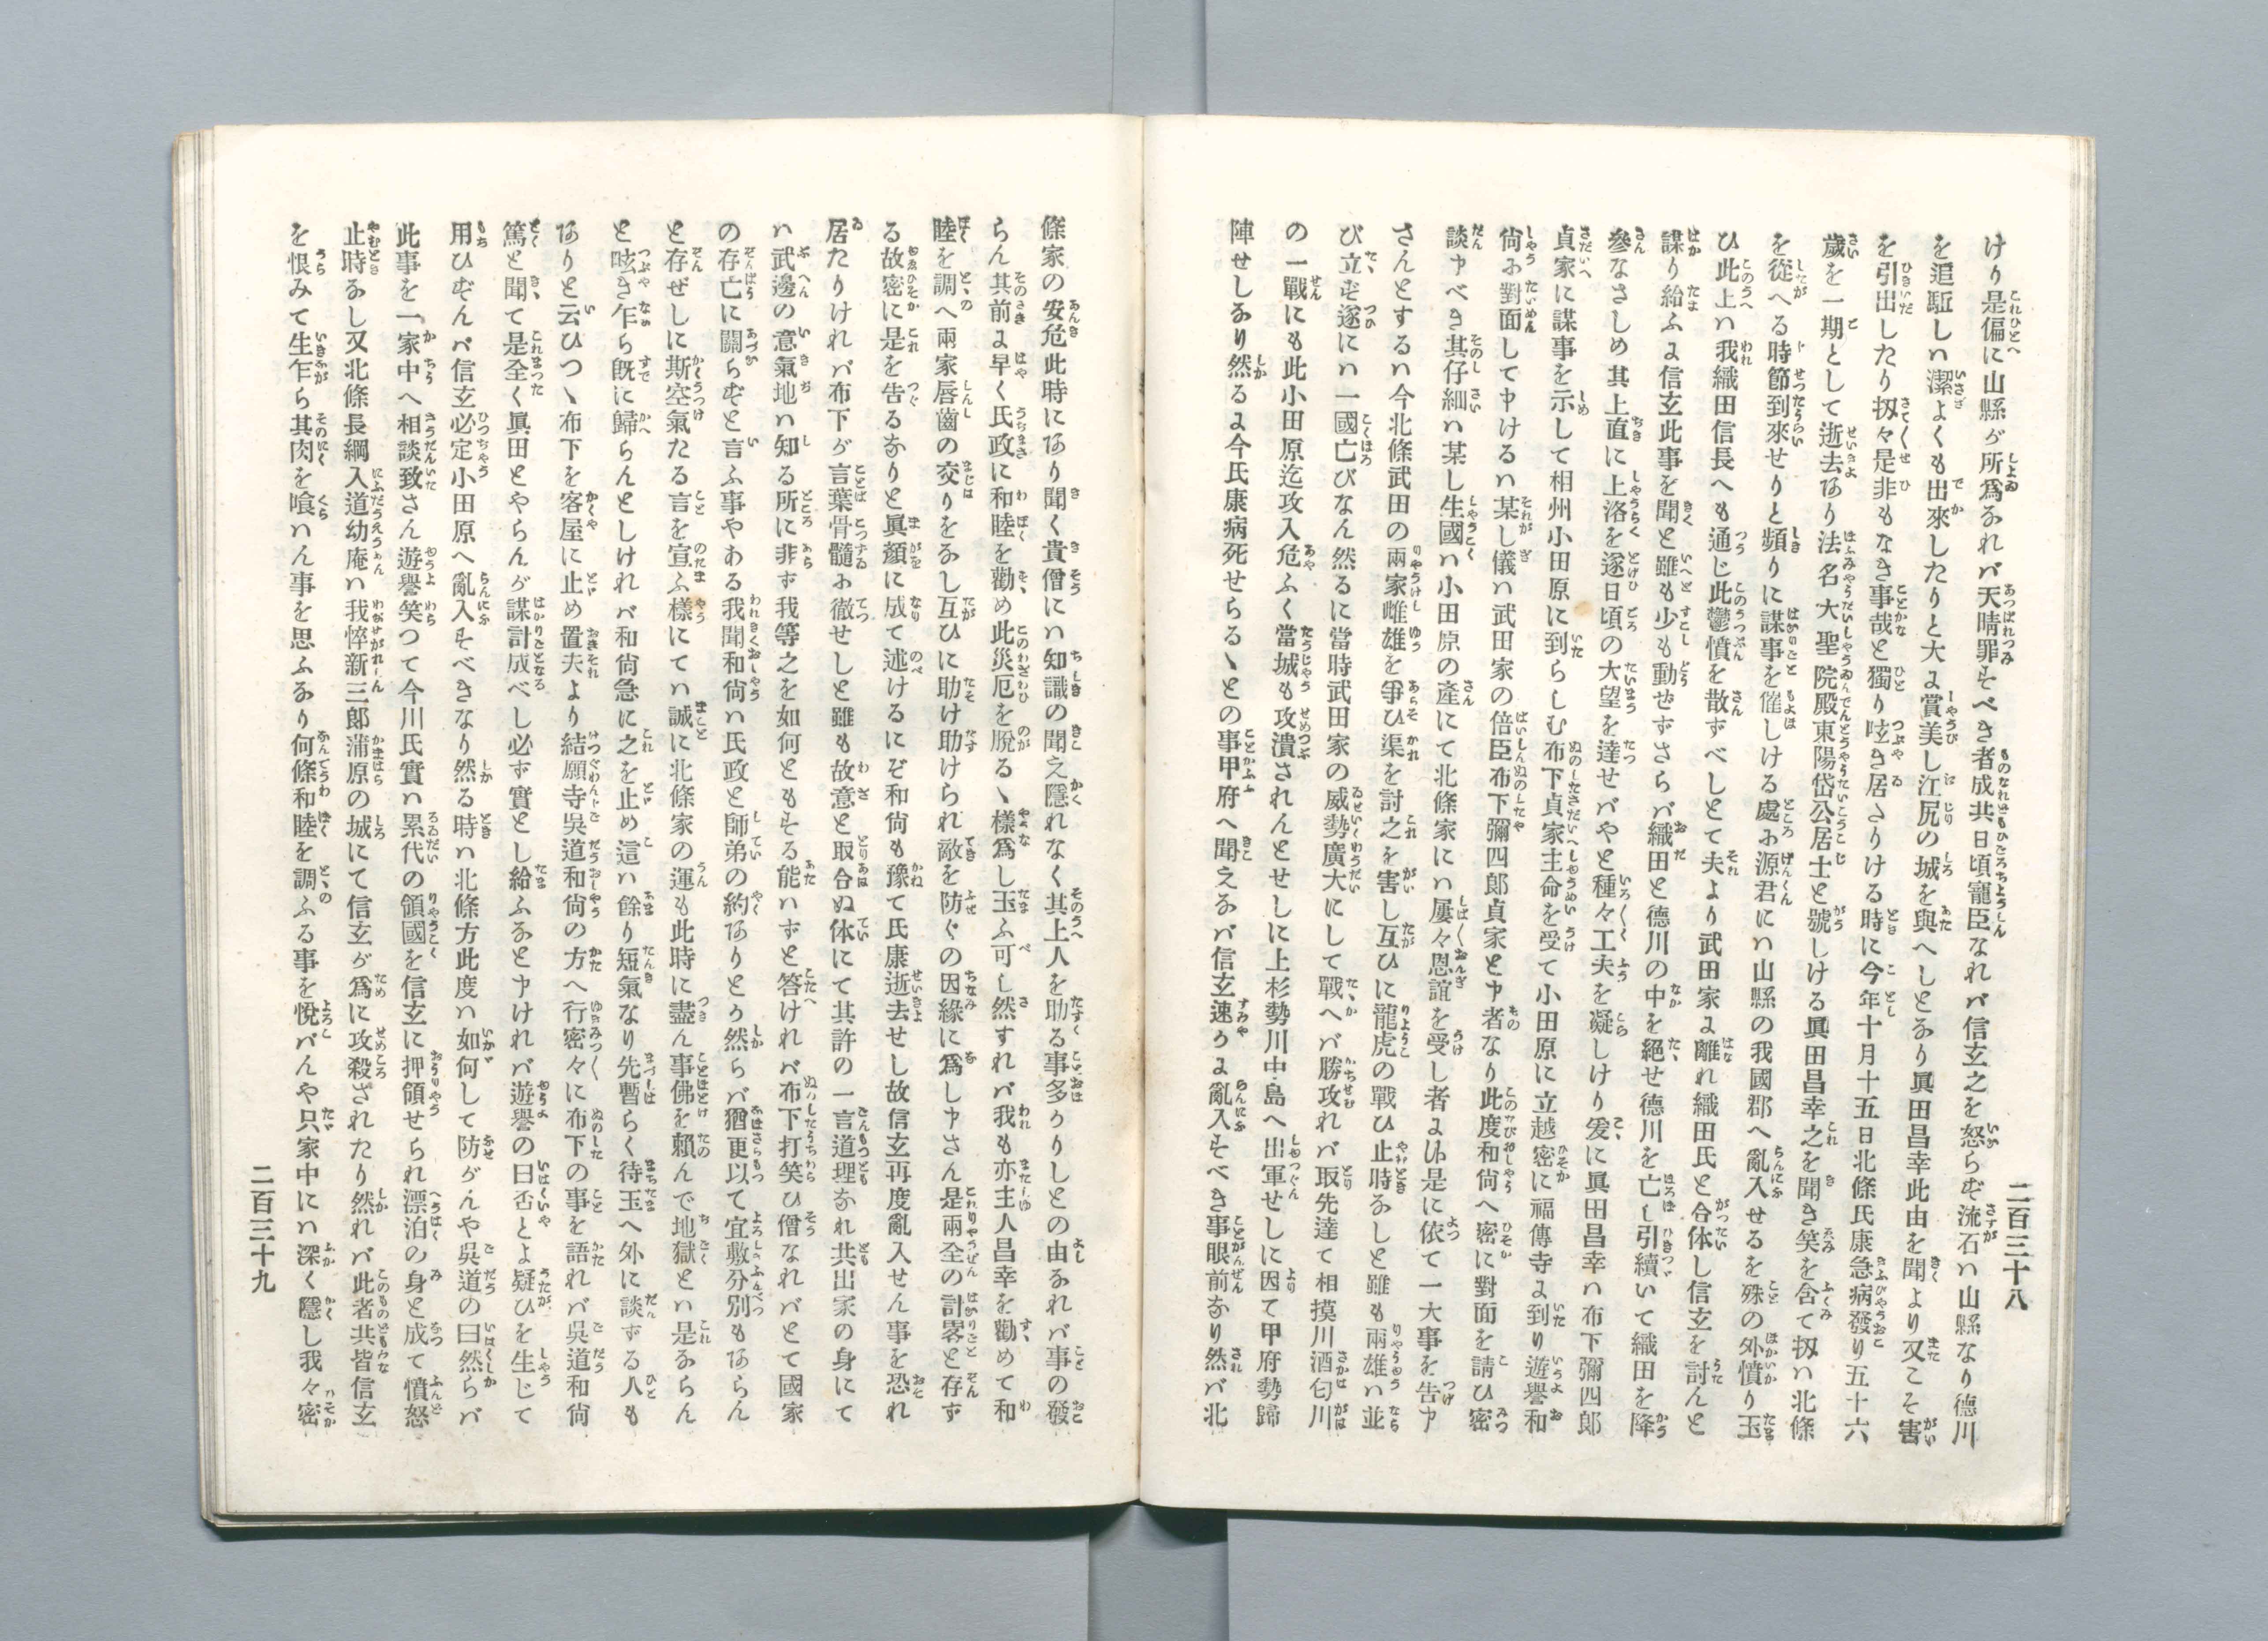 二百三十八
けり是偏に山縣が所爲なれバ天晴罪すべき者成共日頃寵臣なれバ信玄之を怒らず流石ハ山縣なり德川
を追駈しハ潔よくも出來したりと大に賞美し江尻の城を與へしとなり眞田昌幸此由を聞より又こそ害
を引出したり扨々是非もなき事哉と獨り呟き居たりける時に今年十月十五日北條氏康急病發り五十六
歲を一期として逝去あり法名大聖院殿東陽岱公居士と號しける眞田昌幸之を聞き笑を含て扨ハ北條
を從へる時節到來せりと頻りに謀事を催しける處お源君にハ山縣の我國郡へ亂入せるを殊の外憤り玉
ひ此上ハ我織田信長へも通じ此鬱憤を散ずべしとて夫より武田家に離れ織田氏と合体し信玄を討んと
謀り給ふに信玄此事を聞と雖も少も動せずさらバ織田と德川の中を絕せ德川を亡し引續いて織田を降
參なさしめ其上直に上洛を遂日頃の大望を達せバやと種々工夫を凝しけり爰に眞田昌幸ハ布下彌四郎
貞家に謀事を示して相州小田原に到らしむ布下貞家主命を受て小田原に立越密に福傳寺に到り遊譽和
尙お對面して申けるハ某し儀ハ武田家の倍臣布下彌四郎貞家と申者なり此度和尙へ密に對面を請ひ密
談申べき其仔細ハ某し生國ハ小田原の產にて北條家にハ屢々恩誼を受し者に仆是に依て一大事を告申
さんとするハ今北條武田の兩家雌雄を爭ひ渠を討之を害し互ひに龍虎の戰ひ止時なしと雖も兩雄ハ並
び立ず遂にハ一國亡びなん然るに當時武田家の威勢廣大にして戰へバ勝攻れバ取先達て相摸川酒匂川
の一戰にも此小田原迄攻入危ふく當城も攻潰されんとせしに上杉勢川中島へ出軍せしに因て甲府勢歸
陣せしなり然るに今氏康病死せらるゝとの事甲府へ聞えなバ信玄速かに亂入すべき事眼前なり然バ北
條家の安危此時にあり聞く貴僧にハ知識の聞え隱れなく其上人を助る事多かりしとの由なれバ事の發
らん其前に早く氏政に和睦を勸め此災厄を脫るゝ樣爲し玉ふ可し然すれバ我も亦主人昌幸を勸めて和
睦を調へ兩家唇齒の交りをなし互ひに助け助けられ敵を防ぐの因緣に爲し申さん是兩全の計畧と存ず
る故密に是を告るなりと眞顏に成て述けるにぞ和尙も豫て氏康逝去せし故信玄再度亂入せん事を恐れ
居たりけれバ布下が言葉骨髓お徹せしと雖も故意と取合ぬ体にて其許の一言道理なれ共出家の身にて
ハ武邊の意氣地ハ知る所に非ず我等之を如何ともする能ハずと答けれバ布下打笑ひ僧なれバとて國家
の存亡に關らずと言ふ事やある我聞和尙ハ氏政と師弟の約ありとか然らバ猶更以て宜敷分別もあらん
と存ぜしに斯空氣たる言を宣ふ樣にてハ誠に北條家の運も此時に盡ん事佛を賴んで地獄とハ是ならん
と呟き乍ら旣に歸らんとしけれバ和尙急に之を止め這ハ餘り短氣なり先暫らく待玉へ外に談ずる人も
ありと云ひつゝ布下を客屋に止め置夫より結願寺吳道和尙の方へ行密々に布下の事を語れバ吳道和尙
篤と聞て是全く眞田とやらんが謀計成べし必ず實とし給ふなと申けれバ遊譽の曰否とよ疑ひを生じて
用ひずんバ信玄必定小田原へ亂入すべきなり然る時ハ北條方此度ハ如何して防がんや吳道の曰然らバ
此事を一家中へ相談致さん遊譽笑つて今川氏實ハ累代の領國を信玄に押領せられ漂泊の身と成て憤怒
止時なし又北條長綱入道幼庵ハ我悴新三郎蒲原の城にて信玄が爲に攻殺ざれたり然れバ此者共皆信玄
を恨みて生乍ら其肉を喰ハん事を思ふなり何條和睦を調ふる事を悅バんや只家中にハ深く隱し我々密
二百三十九